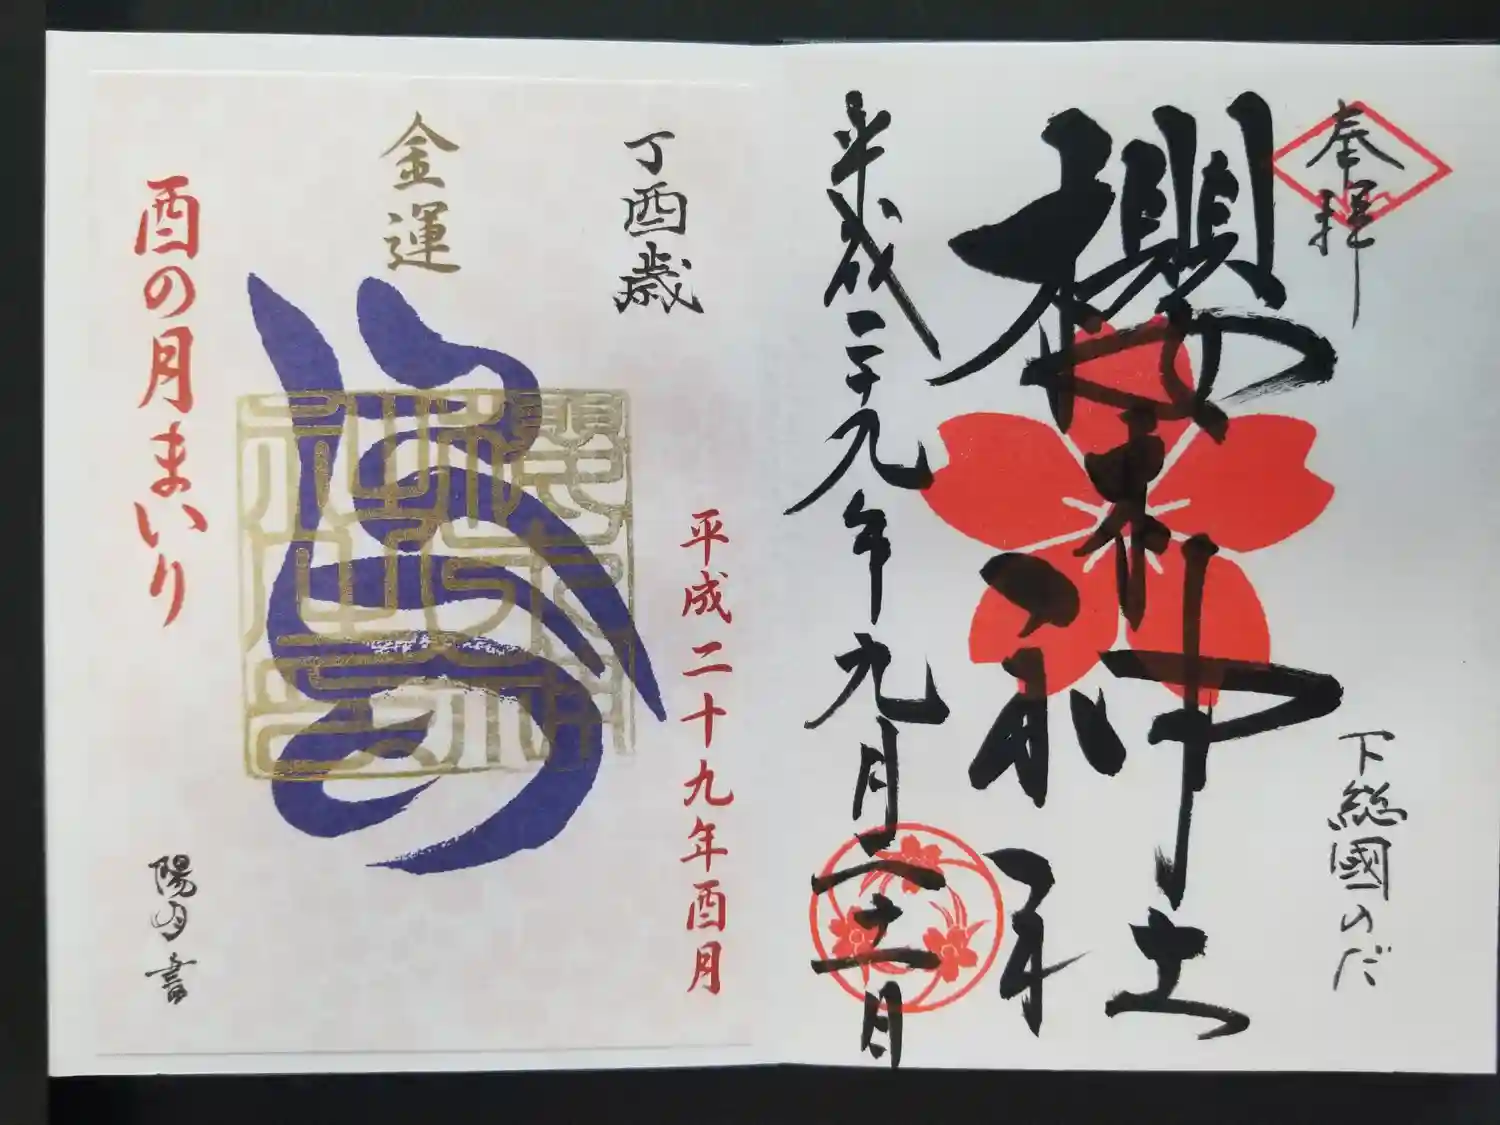 奉拝
下総國のだ
櫻木神社
平成二十九年九月二十一日
丁酉歳
平成二十九年酉月
金運
酉の月まいり
陽月書